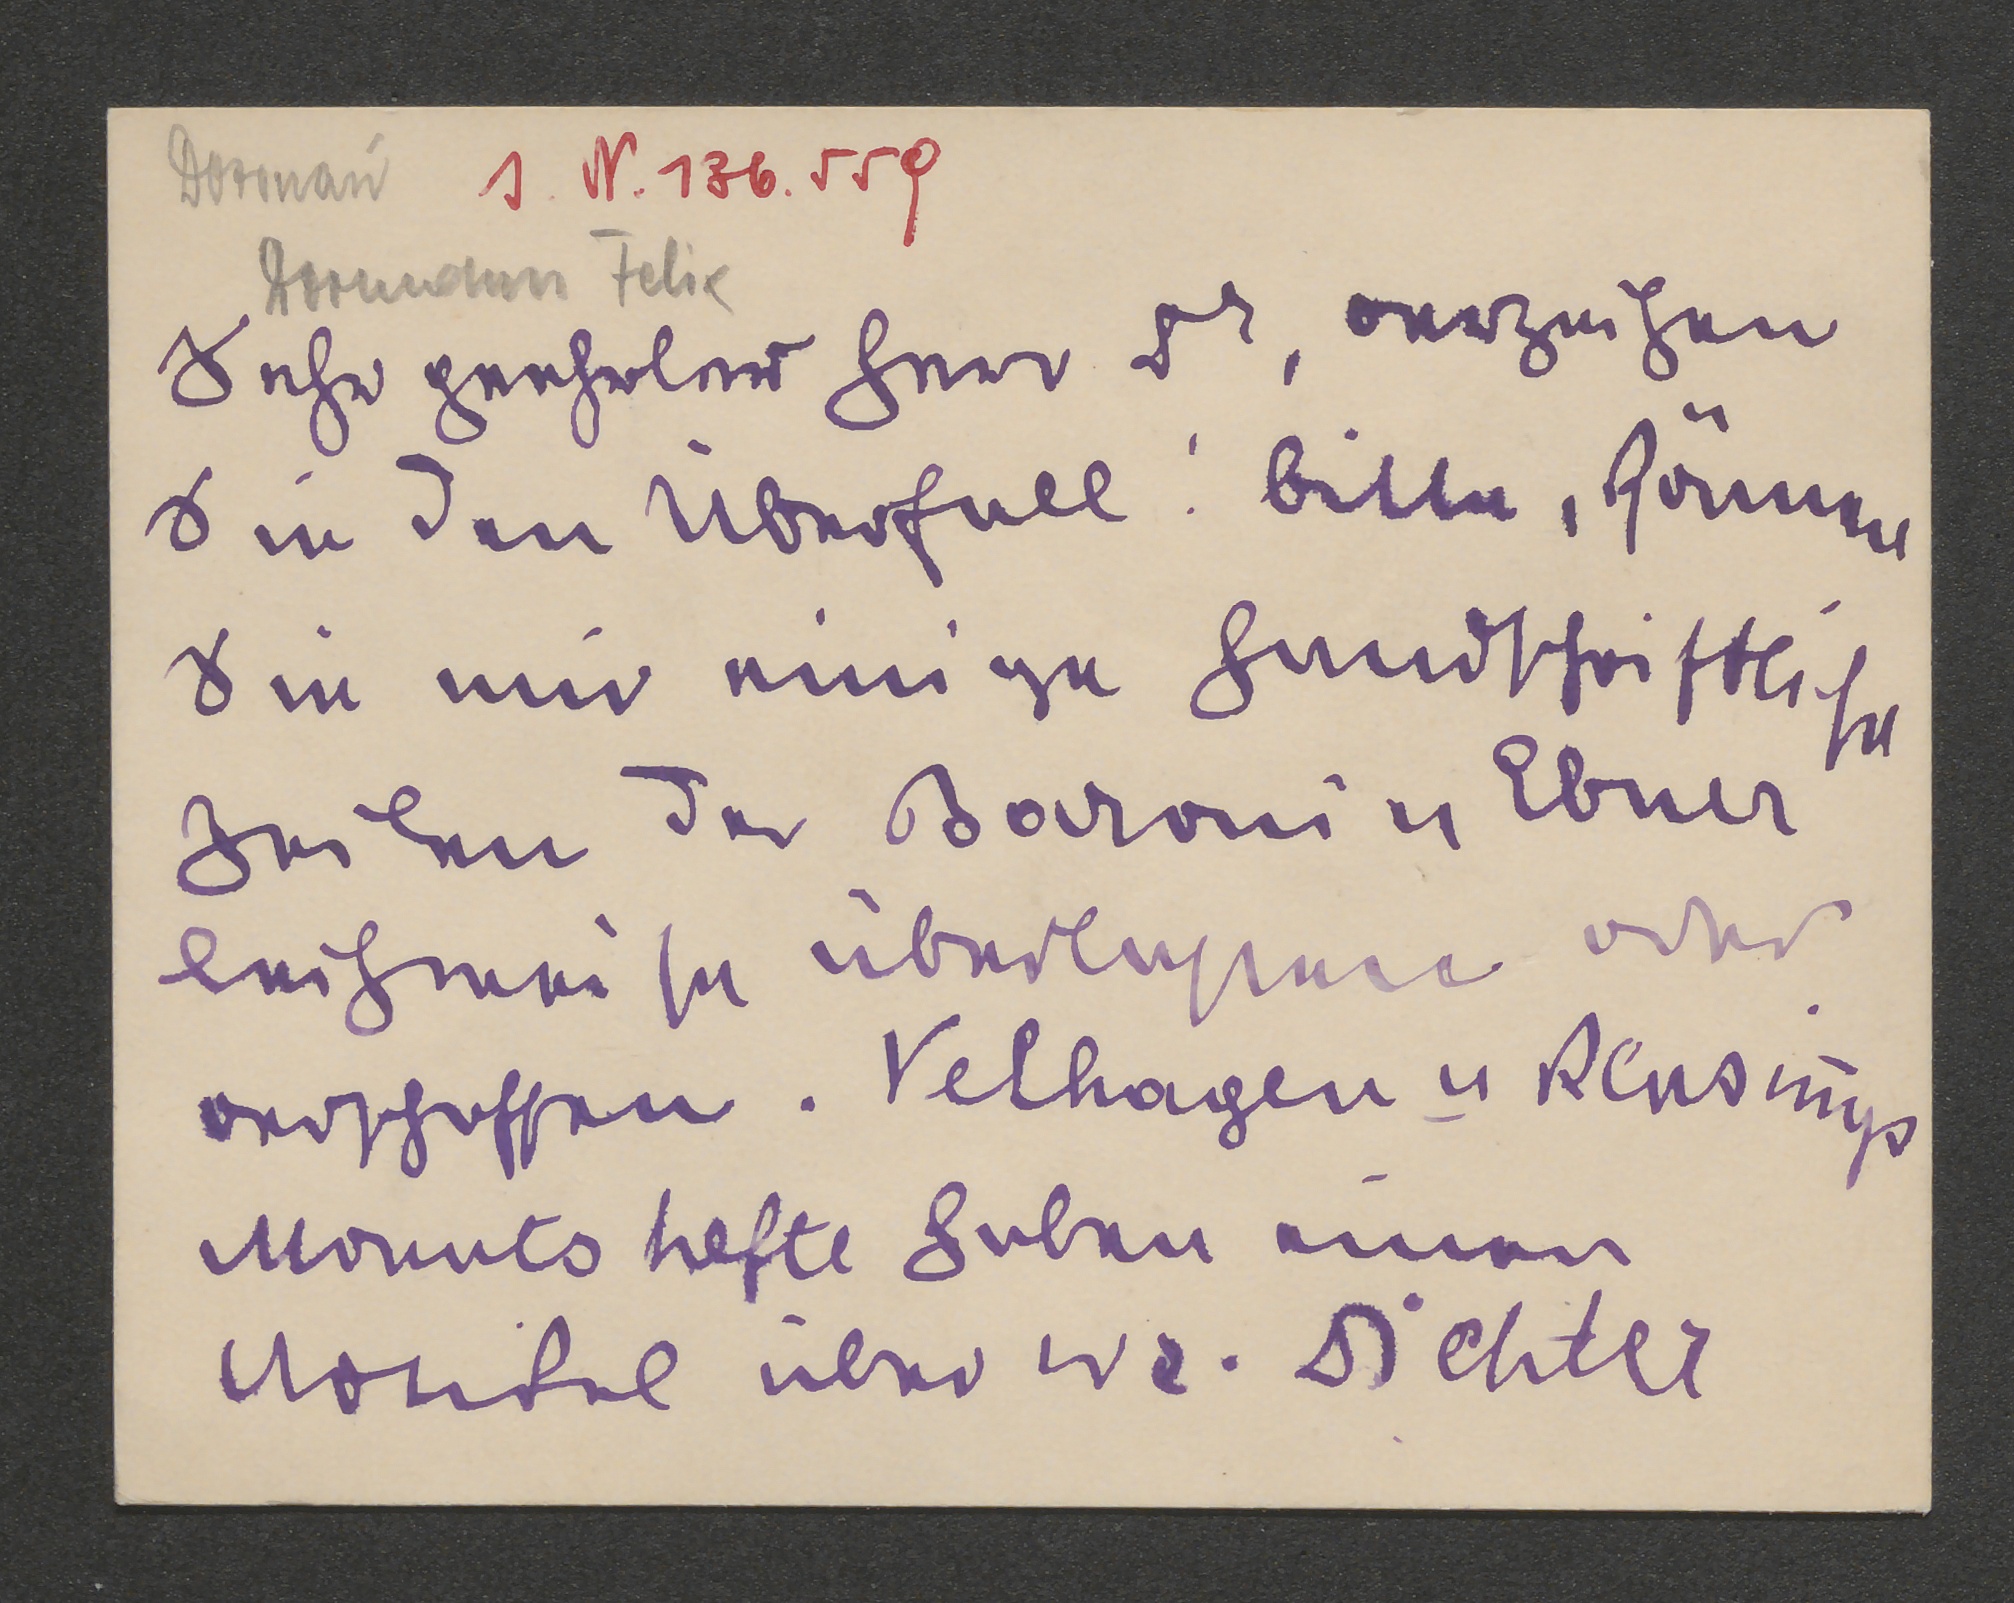 Dormann
I. N. 136.559
Dormann Felix
Sehr geehrter Herr Dr, verzeihen
Sie den Überfall! bitte, können
Sie mir einige handschriftliche
Zeilen der Baronin Ebner
leihweise überlassen oder
verschaffen. Velhagen u Klasings
Monatshefte haben einen
Artikel über wr. Dichter